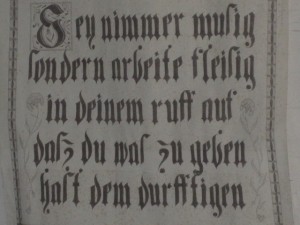 Sey nimmer musig
sondern arbeite fleisig
in deinem ruff auf
dasz du was zu geben
hast dem durfftigen